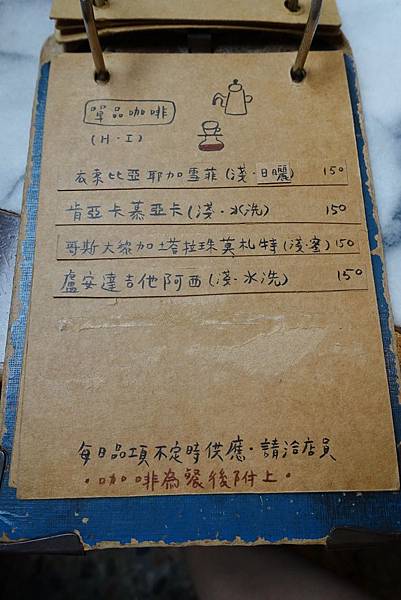 單品咖啡
(H·I)
衣索比亞耶加雪菲(淺·日曬) 150
肯亞卡慕亞卡(淺·水洗) 150
哥斯大黎加塔拉珠莫札特(淺·蜜) 150
盧安達吉他阿西(淺·水洗) 150
每日品項不定時供應·請洽店員
·咖啡為餐後附上·